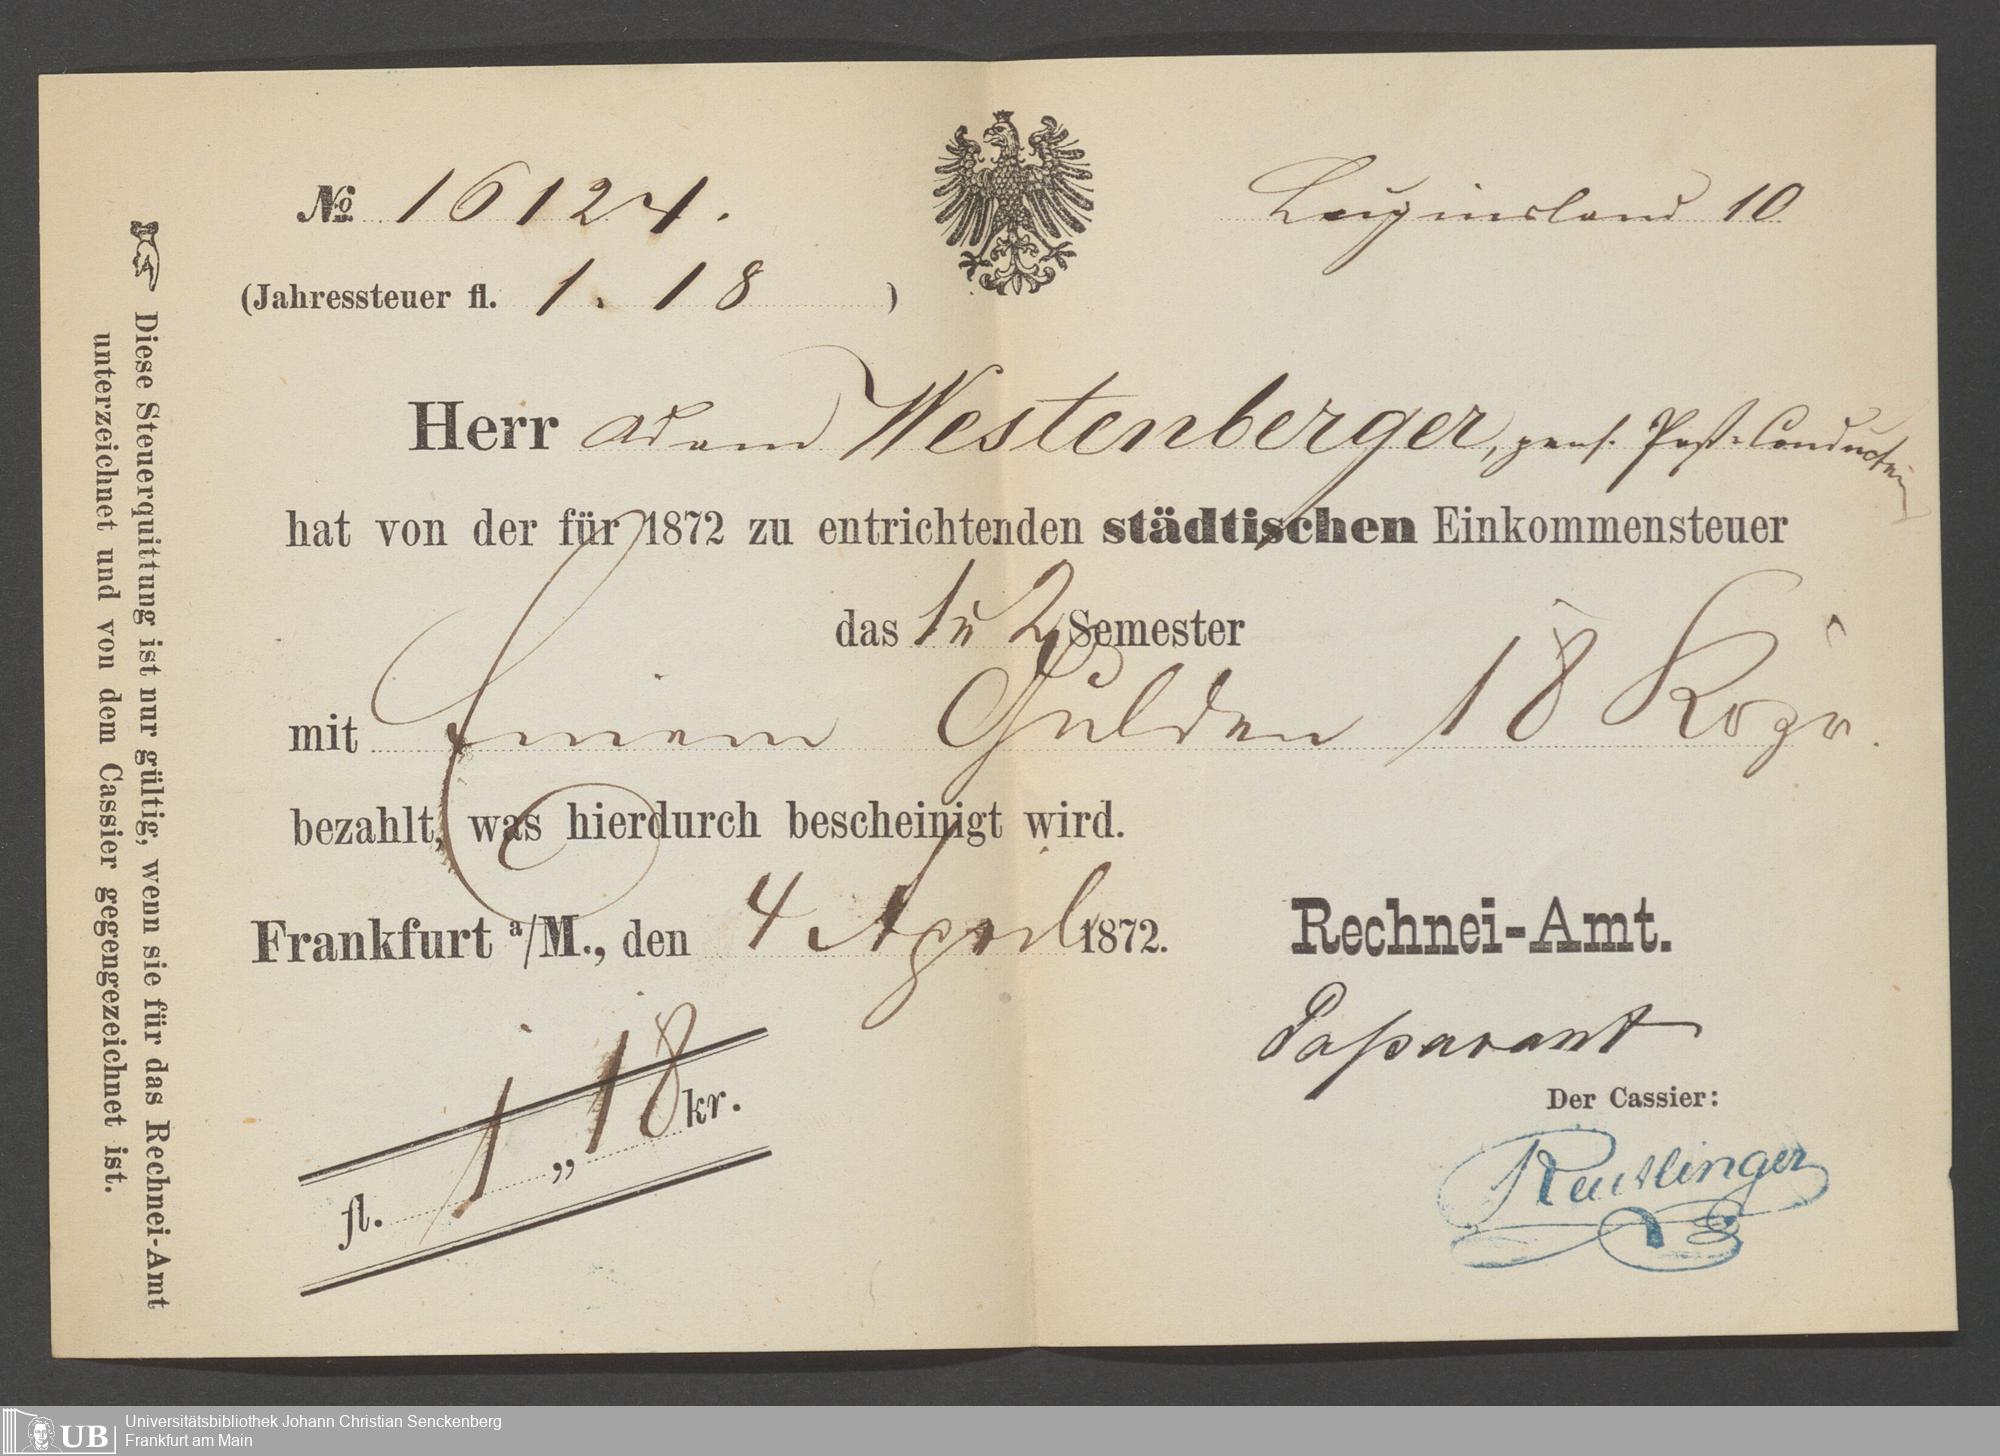 No 16124.
Luginsland 10
(Jahressteuer fl. 1. 18 )
Herr Adam Westenberger, pens. Post-Conducteur
hat von der für 1872 zu entrichtenden städtischen Einkommensteuer
das 1 u 2 Semester
mit Einem Gulden 18 Krzr.
bezahlt, was hierdurch bescheinigt wird.
Frankfurt a/M., den 4 April 1872.
Rechnei-Amt.
Passavant
Der Cassier:
Reutlinger
fl. 1 „ 18 kr.
☞ Diese Steuerquittung ist nur gültig, wenn sie für das Rechnei-Amt
unterzeichnet und von dem Cassier gegengezeichnet ist.
UB
Universitätsbibliothek Johann Christian Senckenberg
Frankfurt am Main